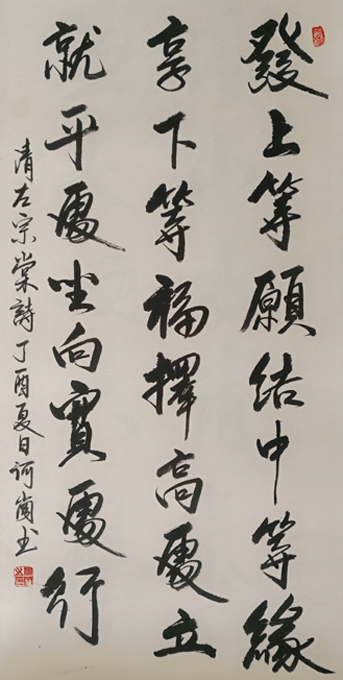 發上等願結中等緣
享下等福擇高處立
就平處坐向寬處行
清左宗棠詩丁酉夏日訶崗书